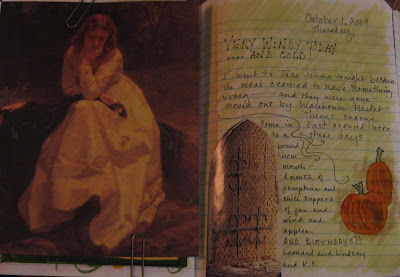 October 1, 2009
Thursday
VERY WINDY TODAY
.... AND COLD
I went to Taco Johns tonight because
the meat seemed to have something
wrong — and they were gone
moved out by Warehouse Market
Things change
fast around here
these days
Come in
to a
brand
new
month-
A month of
pumpkins and
chili suppers
of fun and
wind and
apples.
AND BIRTHDAYS!!
Leonard and Lindsay
and K.C.